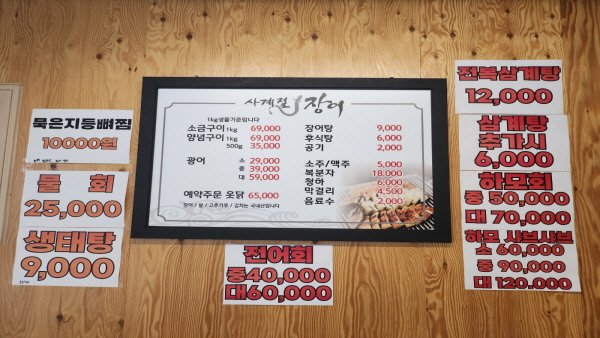 묵은지등뼈찜
10000원
물회
25,000
생태탕
9,000
사계절 장어
1kg생물기준입니다
소금구이 1kg 69,000
양념구이 1kg 69,000
500g 35,000
광어 소 29,000
중 39,000
대 59,000
예약주문 옻닭 65,000
장어 / 쌀 / 고추가루 / 김치는 국내산입니다
장어탕 9,000
후식탕 6,000
공기 2,000
소주/맥주 5,000
복분자 18,000
청하 6,000
막걸리 4,500
음료수 2,000
전어회
중40,000
대60,000
전복삼계탕
12,000
삼계탕
추가시
6,000
하모회
중 50,000
대 70,000
하모 샤브샤브
소 60,000
중 90,000
대 120,000